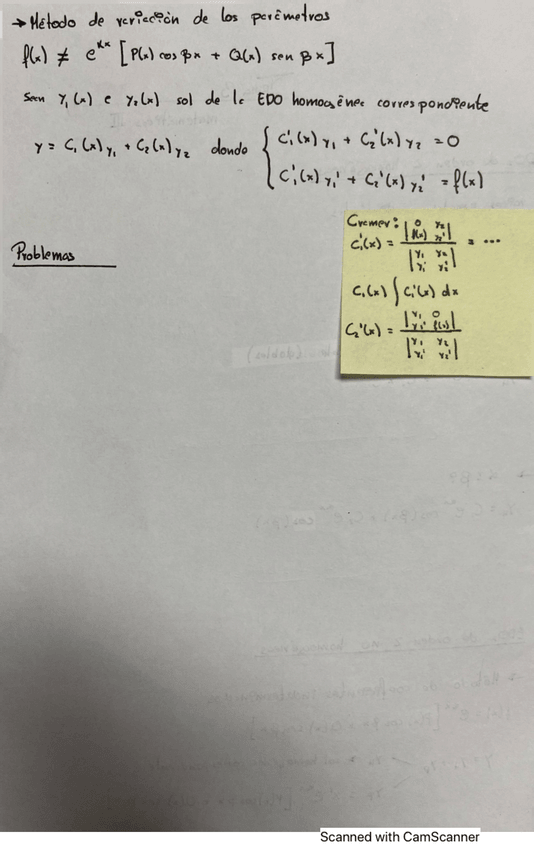 → Método de variación de los parámetros
f(x) ≠ e^αx [P(x) cos βx + Q(x) sen βx]
Sean y₁(x) e y₂(x) sol de la EDO homogénea correspondiente
y = C₁(x) y₁ + C₂(x) y₂ donde { C₁'(x) y₁ + C₂'(x) y₂ = 0
C₁'(x) y₁' + C₂'(x) y₂' = f(x)
Cramer:
C₁'(x) = |0 y₂ f(x) y₂'| / |y₁ y₂ y₁' y₂'| = ...
C₁(x) ∫ C₁'(x) dx
C₂'(x) = |y₁ 0 y₁' f(x)| / |y₁ y₂ y₁' y₂'|
Problemas
Scanned with CamScanner